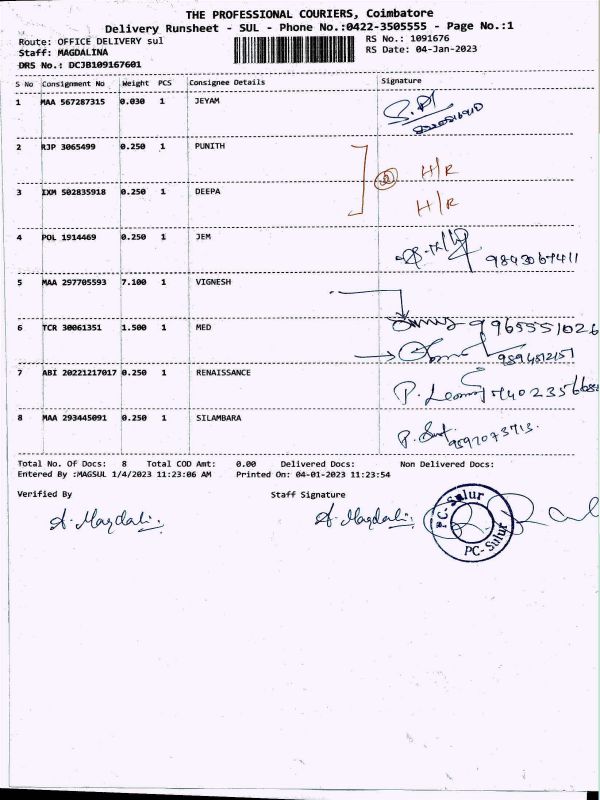 THE PROFESSIONAL COURIERS, Coimbatore
Delivery Runsheet - SUL - Phone No.:0422-3505555 - Page No.:1
Route: OFFICE DELIVERY sul
RS No.: 1091676
Staff: MAGDALINA
RS Date: 04-Jan-2023
DRS No.: DCJB109167601
S No Consignment No Weight PCS Consignee Details Signature
1 MAA 567287315 0.030 1 JEYAM
2 RJP 3065499 0.250 1 PUNITH H/R
3 IXM 502835918 0.250 1 DEEPA H/R
4 POL 1914469 0.250 1 JEM 9843067411
5 MAA 297705593 7.100 1 VIGNESH
9965551026
6 TCR 30061351 1.500 1 MED
9894512157
7 ABI 20221217017 0.250 1 RENAISSANCE
8 MAA 293445091 0.250 1 SILAMBARA
Total No. Of Docs: 8 Total COD Amt: 0.00 Delivered Docs: Non Delivered Docs:
Entered By :MAGSUL 1/4/2023 11:23:06 AM Printed On: 04-01-2023 11:23:54
Verified By Staff Signature
A. Magdali A. Magdali
P.C-Sulur
PC-Sulur